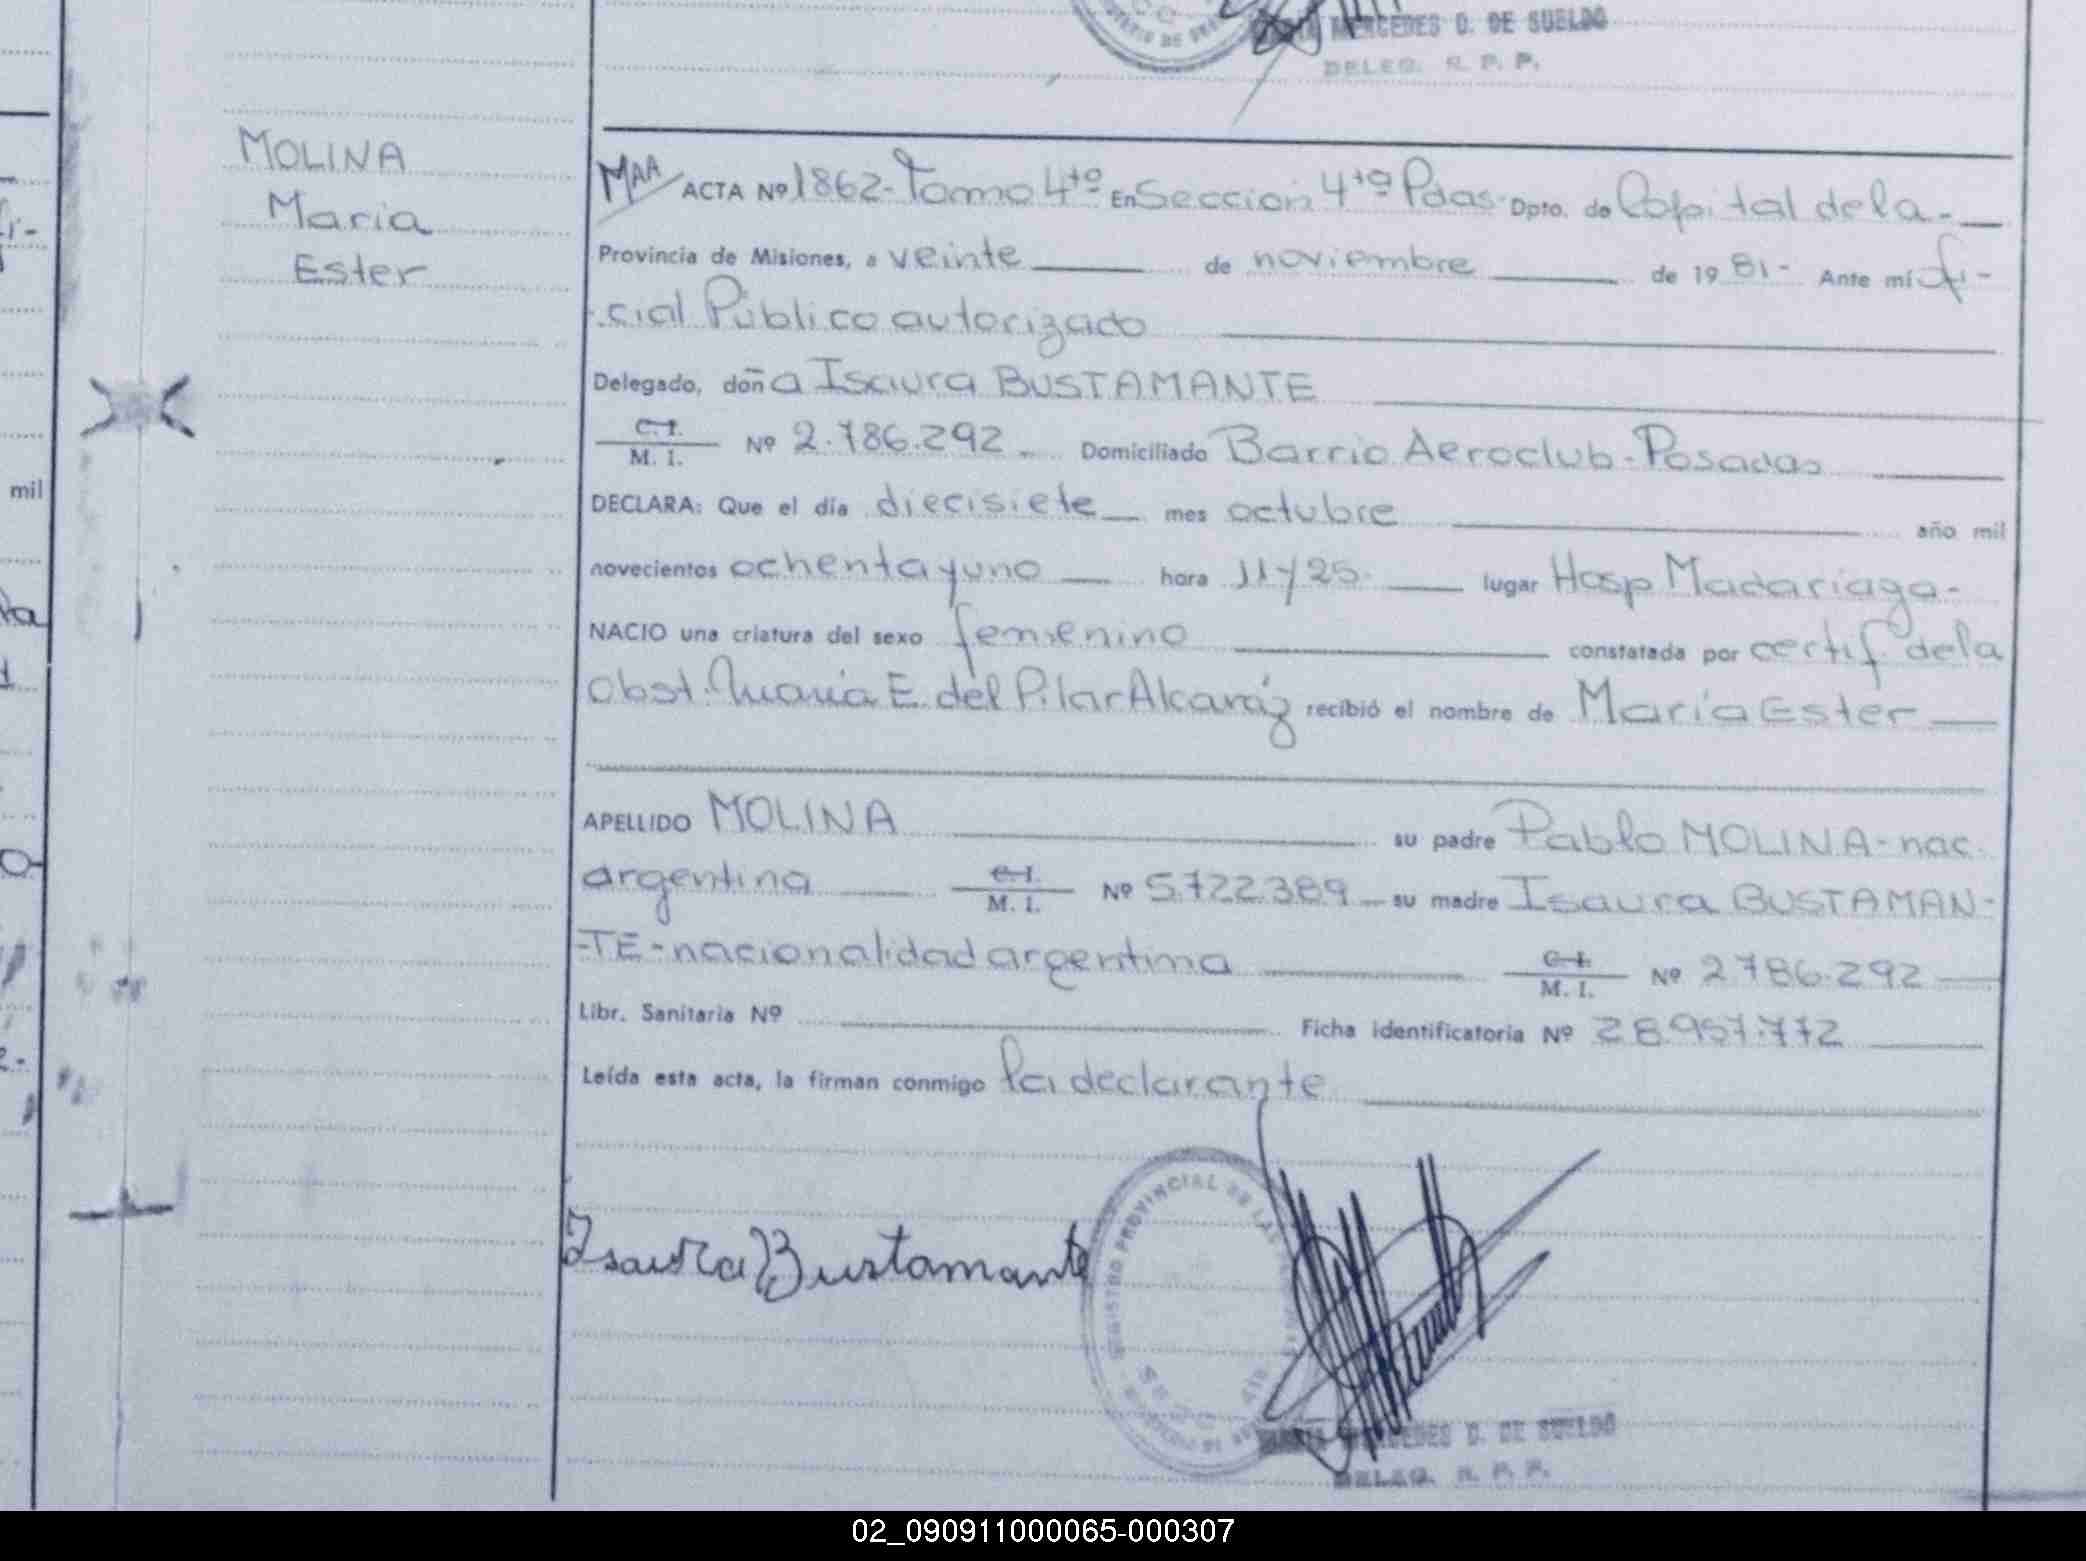 MERCEDES D. DE SUELDO
DELEG. R. P. P.
MOLINA
Maria
Ester
MAA ACTA Nº 1862- Tomo 4to En Seccion 4ta Pdas- Dpto. de Capital de la-
Provincia de Misiones, a veinte de noviembre de 1981- Ante mí ofi-
-cial Público autorizado
Delegado, doña Isaura BUSTAMANTE
C. I.
M. I. Nº 2.786.292 Domiciliado Barrio Aeroclub-Posadas
DECLARA: Que el día diecisiete mes octubre año mil
novecientos ochenta y uno hora 11 y 25. lugar Hosp Madariaga-
NACIO una criatura del sexo femenino constatada por certif de la
Obst. Maria E. del Pilar Alcaráz recibió el nombre de María Ester
APELLIDO MOLINA su padre Pablo MOLINA- nac.
argentina C. I. M. I. Nº 5.722.389 su madre Isaura BUSTAMAN-
-TE- nacionalidad argentina C. I. M. I. Nº 2786.292
Libr. Sanitaria Nº Ficha identificatoria Nº 28.957.772
Leída esta acta, la firman conmigo la declarante
Isaura Bustamante
REGISTRO PROVINCIAL DE LAS
MERCEDES D. DE SUELDO
DELEG. R. P. P.
mil
02_090911000065-000307